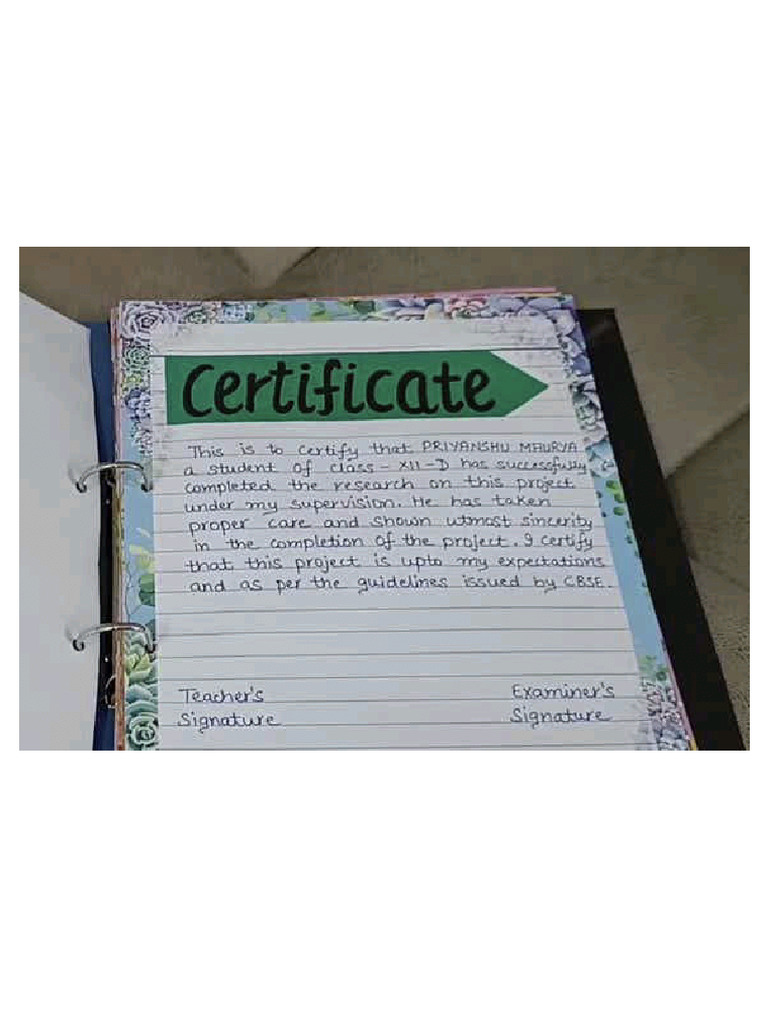 Certificate
This is to certify that PRIYANSHU MAURYA
a student of class - XII - D has successfully
completed the research on this project
under my supervision. He has taken
proper care and shown utmost sincerity
in the completion of the project. I certify
that this project is upto my expectations
and as per the guidelines issued by CBSE.
Teacher's Examiner's
Signature Signature